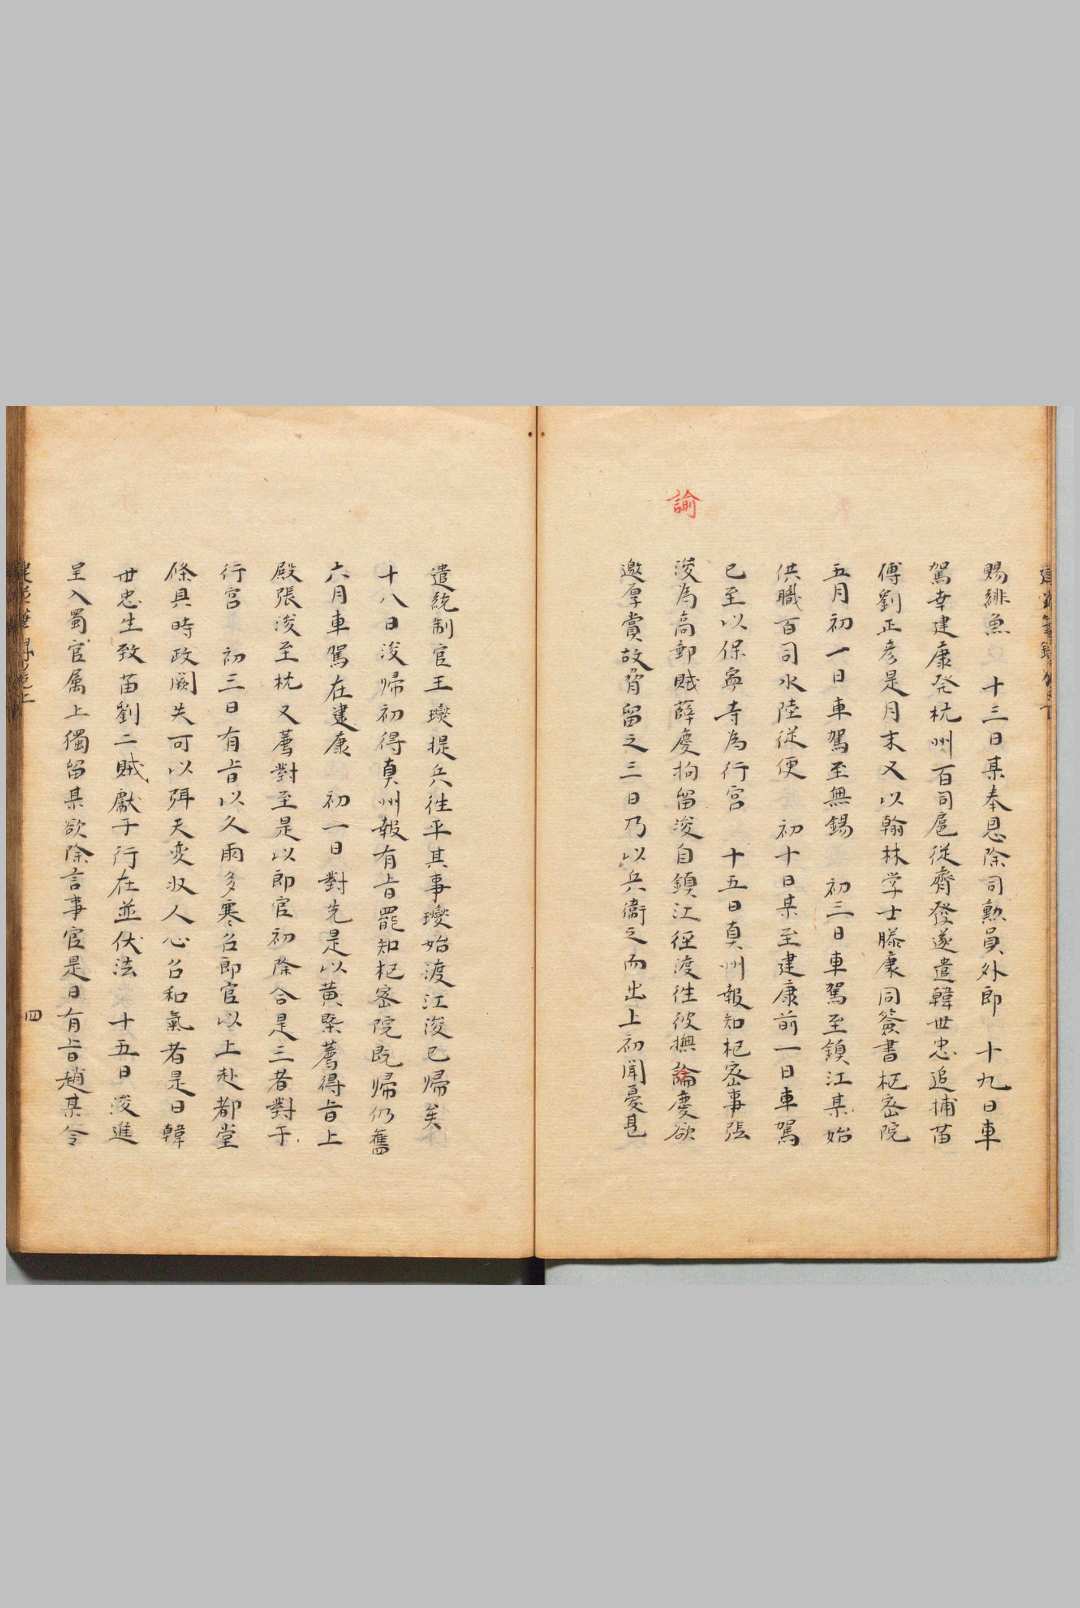 賜緋魚　十三日某奉恩除司勲員外郎　十九日車
駕幸建康発杭州百司扈從齊發遂遣韓世忠追捕苗
傅劉正彦是月末又以翰林学士滕康同簽書枢密院
五月初一日車駕至無錫　初三日車駕至鎮江某始
供職百司水陸従便　初十日某至建康前一日車駕
已至以保寧寺為行宮　十五日真州報知枢密事張
諭
浚為高郵賊薛慶拘留浚自鎮江徑渡往彼撫論慶欲
邀厚賞故脅留之三日乃以兵衞之而出上初聞憂甚
遣統制官王𤫉提兵往平其事𤫉始渡江浚已歸矣
十八日浚帰初得真州報有㫖罷知枢密院既歸仍舊
六月車駕在建康　初一日對先是以黄槩薦得㫖上
殿張浚至杭又薦對至是以郎官初除合是三者對于
行宮　初三日有㫖以久雨多寒召郎官以上赴都堂
條具時政闕失可以弭天変収人心召和氣者是日韓
世忠生致苗劉二賊獻于行在並伏法　十五日浚進
呈入蜀官属上獨留某欲除言事官是日有㫖趙某令
四